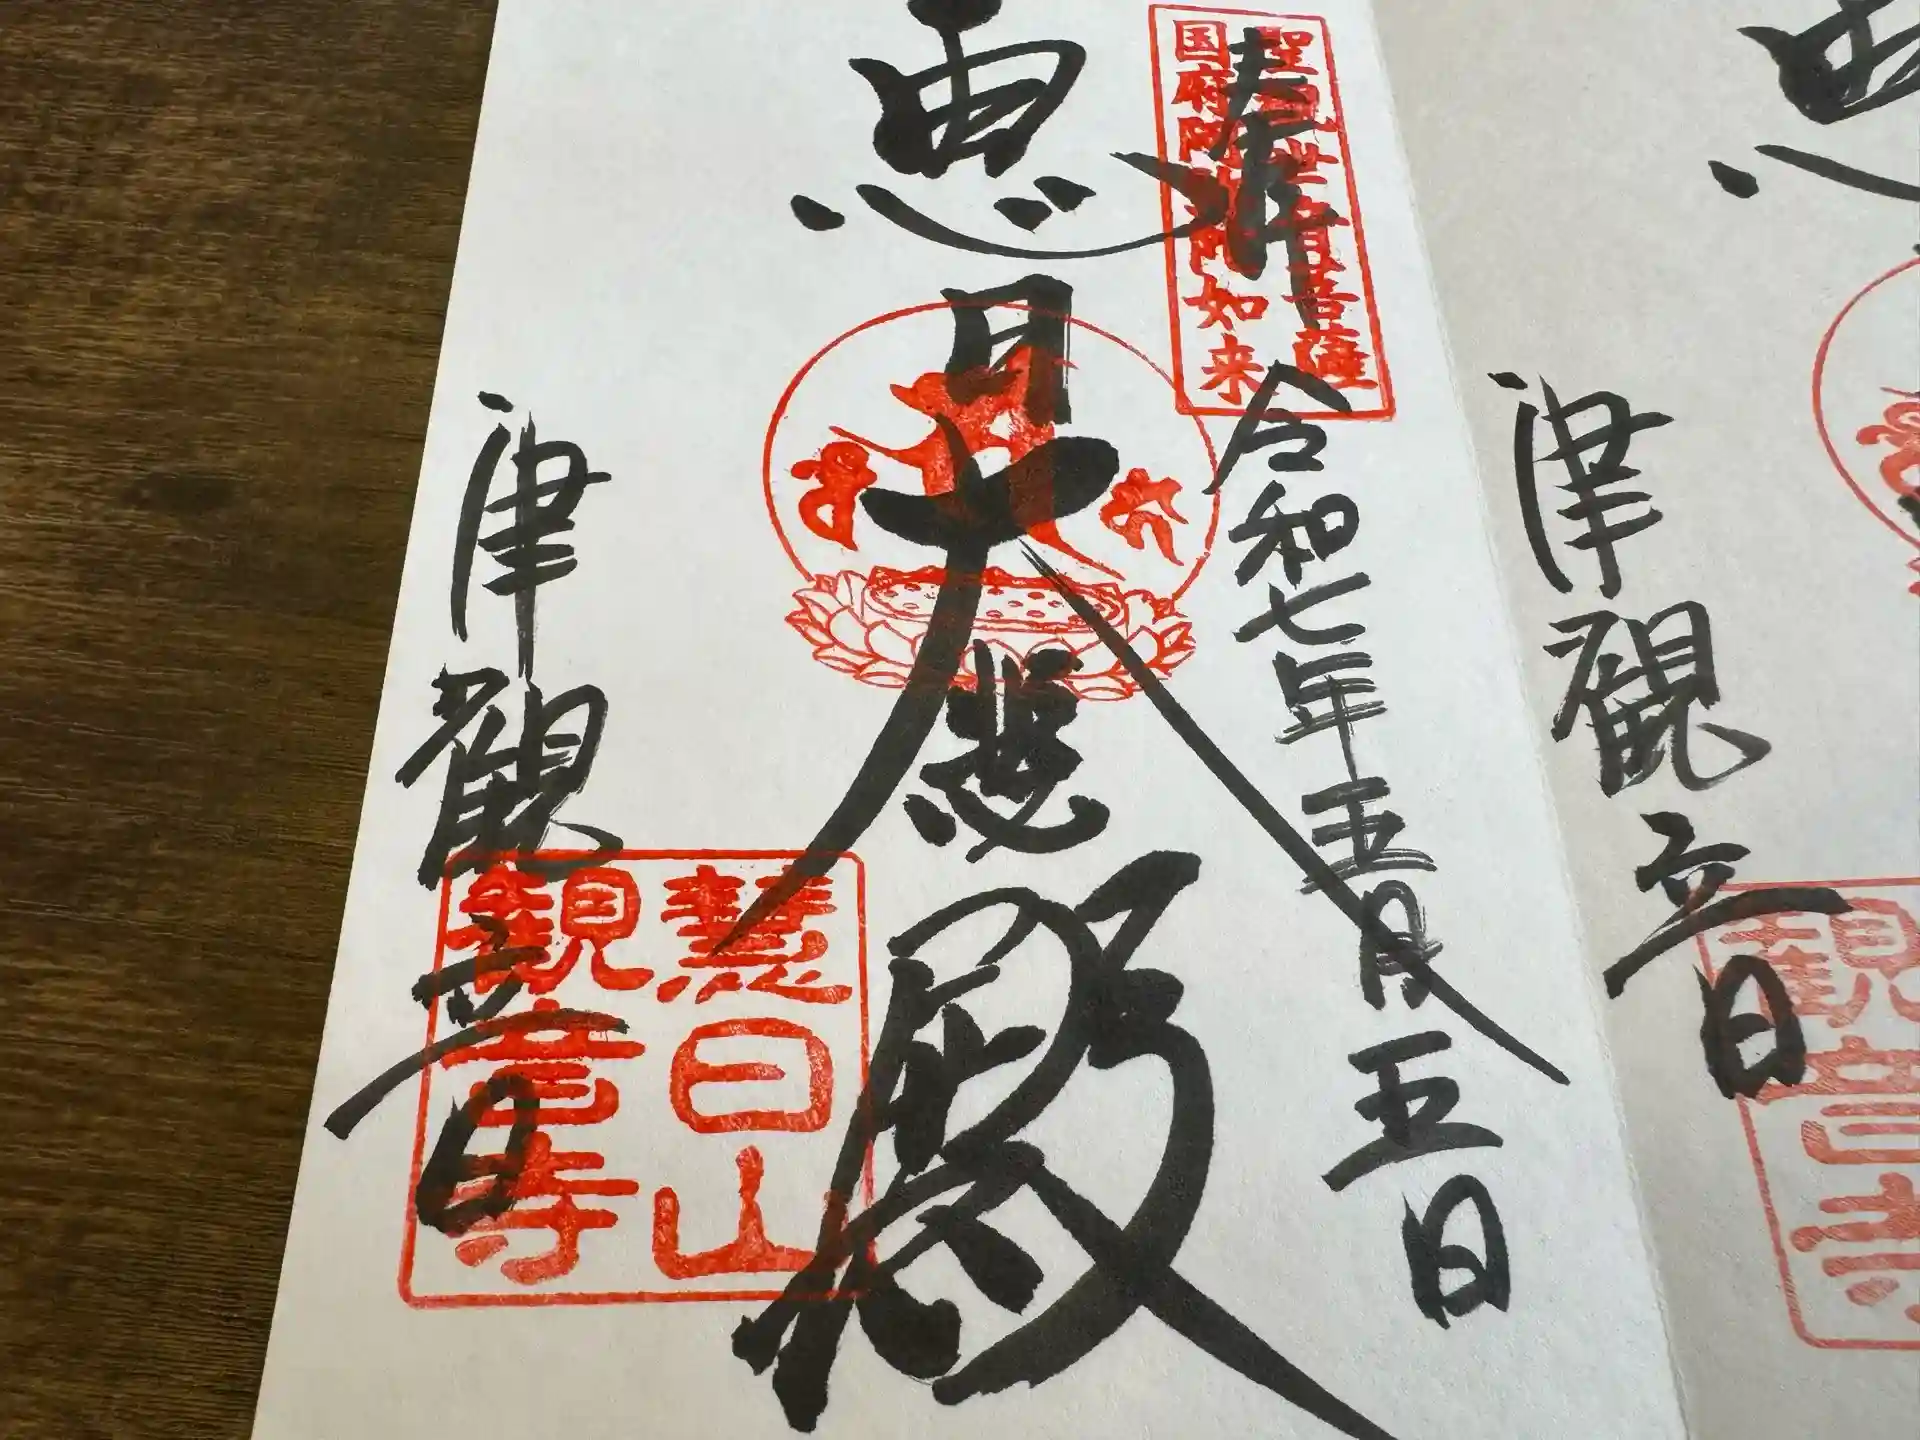 奉拝
聖観世音菩薩
国府阿弥陀如来
令和七年五月五日
恵日
大悲殿
慧日山
観音寺
津観音
津観音
観音寺